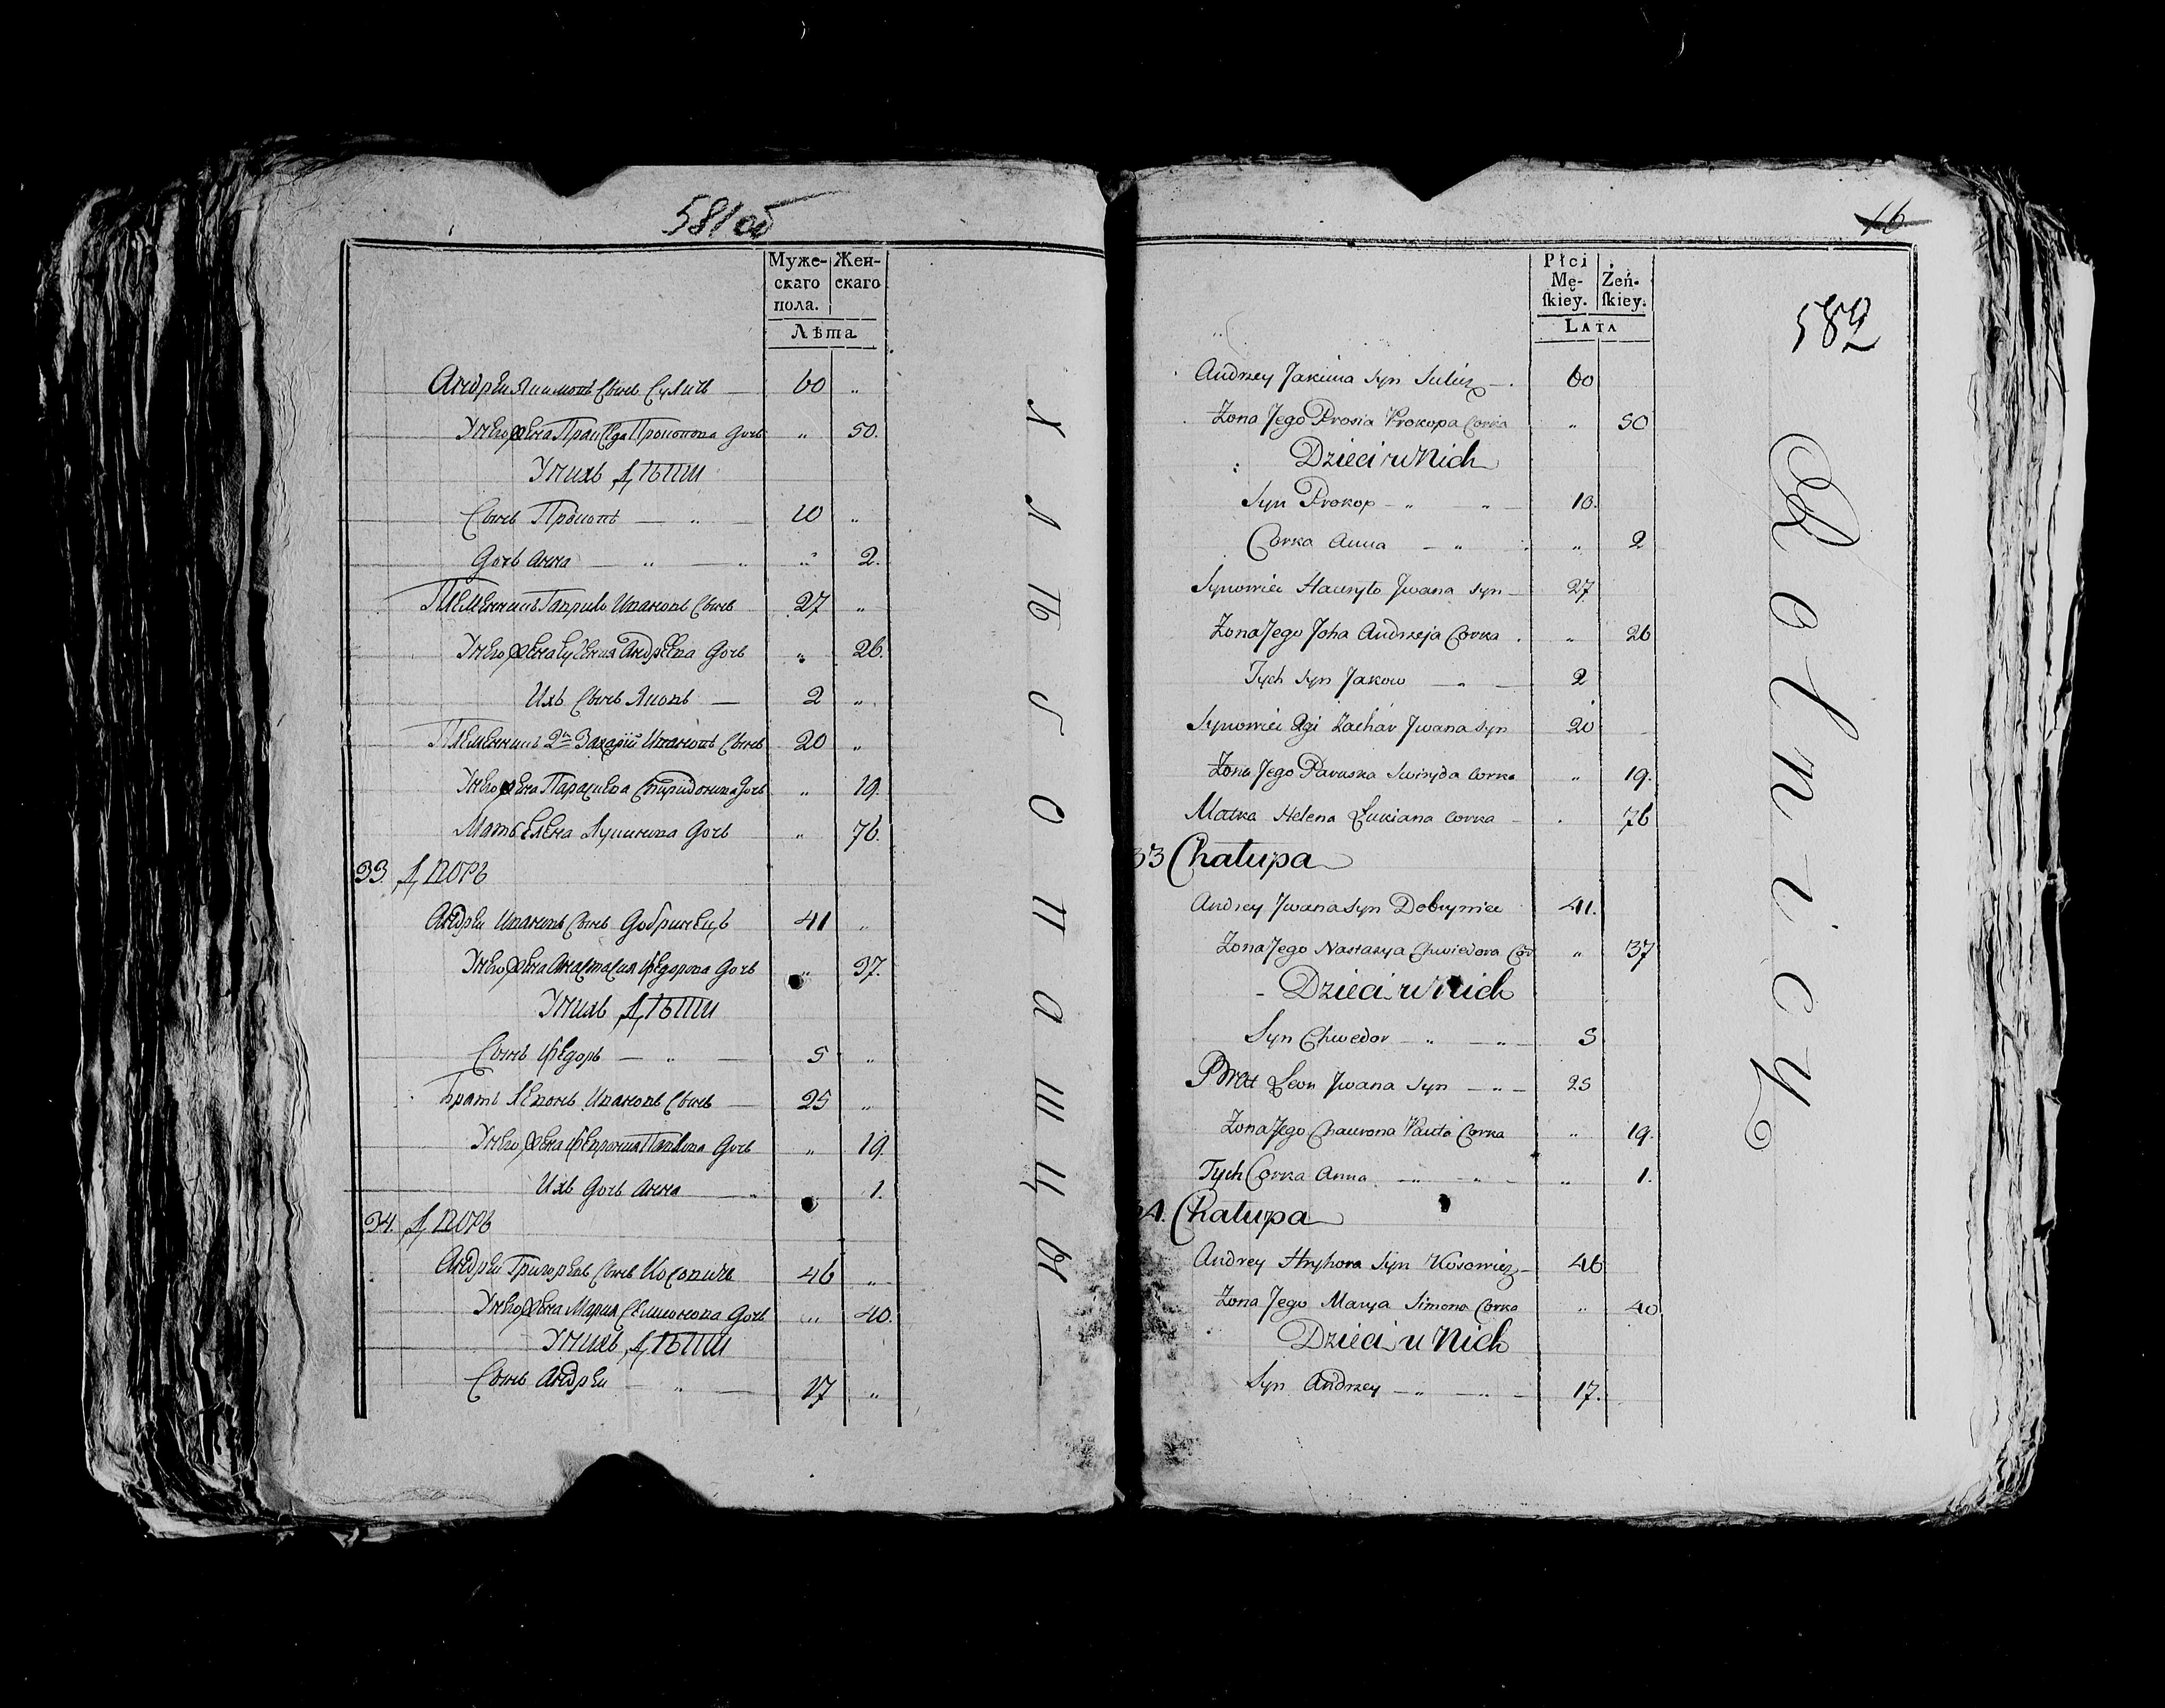 581об
Муже-
скаго
пола.
Жен-
скаго
Лѣта
Андрей Якимовъ Сынъ Суличъ — 60 „
У него Жена Праксѣда Прокопова Дочь „ 50.
У нихъ Дѣти
Сынъ Прокопъ — „ — 10 „
Дочь Анна — „ — „ „ 2.
Племянникъ Гаврило Ивановъ Сынъ 27 „
У него Жена Андрѣева Дочь „ 26.
Ихъ Сынъ Яковъ — 2 „
Племянникъ 2й Захарiй Ивановъ Сынъ 20 „
У него Жена Параскева Спиридонова Дочь „ 19.
Мать Елена Лукинова Дочь „ 76.
33. Дворъ
Андрей Ивановъ Сынъ Добринецъ 41 „
У него Жена Анастасия Федорова Дочь „ 37.
У нихъ Дѣти
Сынъ Федоръ — „ — 5 „
Братъ Левонъ Ивановъ Сынъ — 25 „
У него Жена Феврония Павлова Дочь „ 19.
Ихъ Дочь Анна — „ 1.
34. Дворъ
Андрей Григорьевъ Сынъ Косовичъ 46 „
У него Жена Мария Семионова Дочь „ 40.
У нихъ Дѣти
Сынъ Андрей — „ — 17 „
Хлѣбопашцы
16
582
Płci
Mę-
skiey.
Żeń-
skiey.
LATA
Andrzey Jakima Syn Sulicz — 60
Żona Jego Prosia Prokopa Corka „ 50
Dzieci u Nich
Syn Prokop — „ „ — 10.
Corka Anna — „ „ 2
Synowiec Hauryło Jwana Syn — 27.
Żona Jego Andrzeja Corka . „ 26
Tych Syn Jakow — „ — 2
Synowiec 2gi Zachar Jwana Syn 20
Żona Jego Paraska Swiryda Corka „ 19.
Matka Helena Łukiana Corka — . 76
33 Chałupa
Andrey Jwana Syn Dobryniec 41.
Żona Jego Nastazya Chwiedora Cor „ 37
- Dzieci u Nich
Syn Chwedor — „ — „ — 5
Brat Leon Jwana Syn — „ — 25
Żona Jego Chaurona Pauła Corka „ 19.
Tych Corka Anna. — „ „ — „ 1.
34. Chałupa
Andrey Hryhora Syn Kosowicz — 46
Żona Jego Marya Simona Corka „ 40
Dzieci u Nich
Syn Andrzey — „ — „ — 17.
Rolnicy